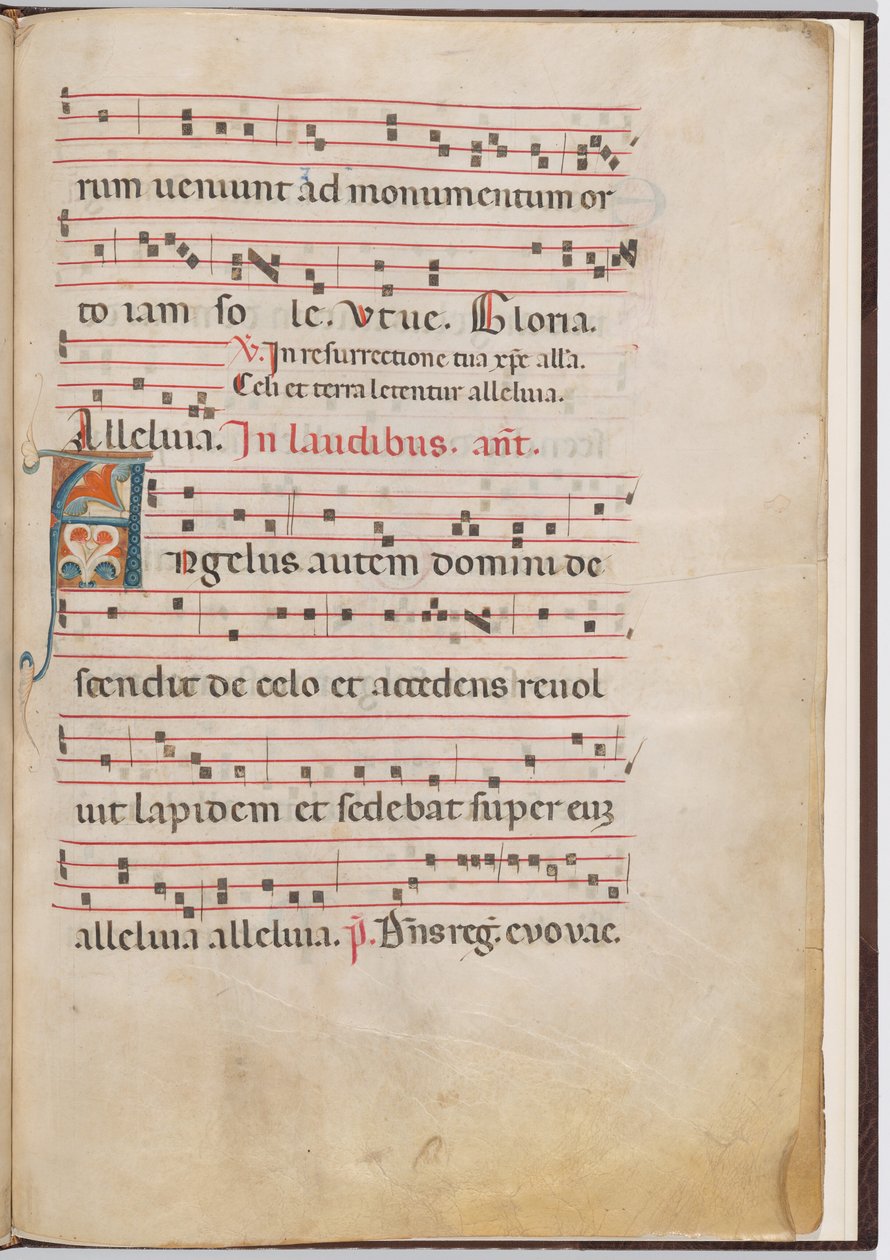 rum ueniunt ad monumentum or
to iam so le. Vt ue. Gloria.
V̄. In resurrectione tua xp̄e all'a.
Celi et terra letentur alleluia.
Alleluia. In laudibus. an̄t.
Angelus autem domini de
scendit de celo et accedens reuol
uit lapidem et sedebat super euʒ
alleluia alleluia. p̄. Dn̄s reḡ. evovae.